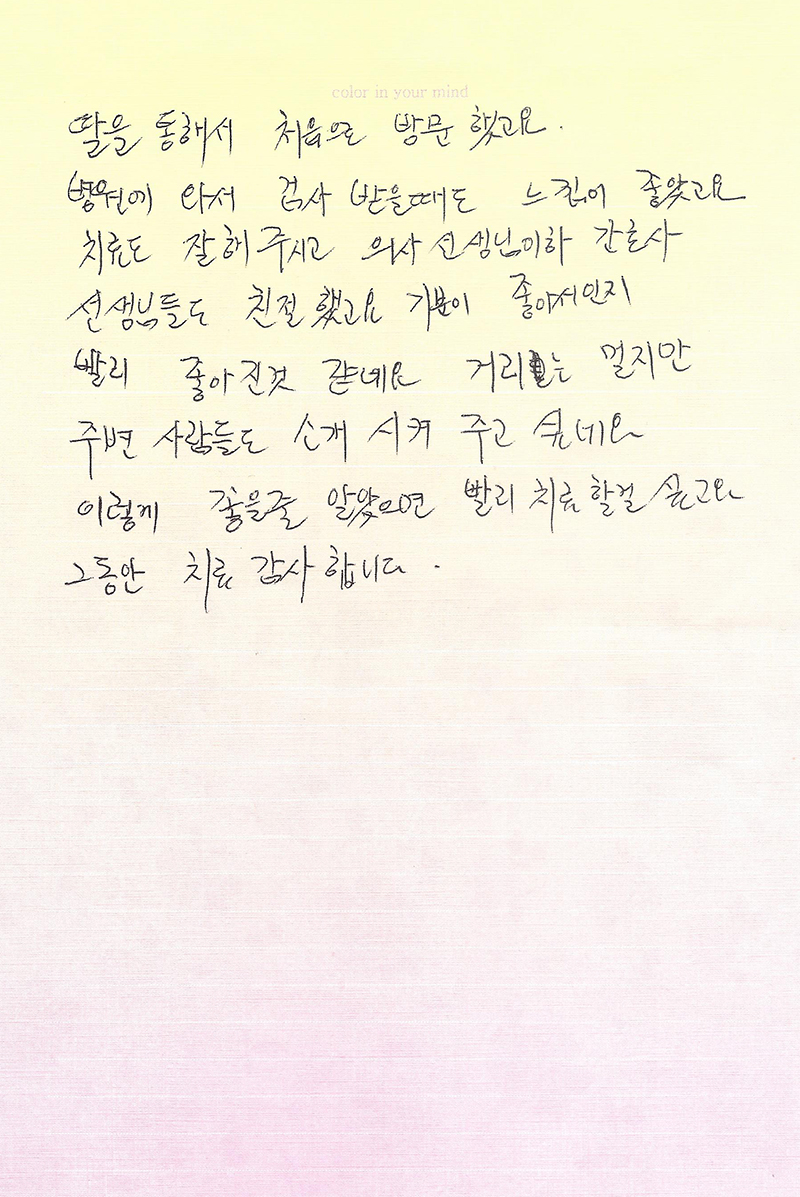 color in your mind
딸을 통해서 처음으로 방문 했고요.
병원에 와서 검사 받을때도 느낌이 좋았고요
치료도 잘해주시고 의사선생님이하 간호사
선생님들도 친절했고요 기분이 좋아서인지
빨리 좋아진것 같네요 거리는 멀지만
주변 사람들도 소개 시켜 주고 싶네요
이렇게 좋을줄 알았으면 빨리 치료할걸 싶고요
그동안 치료 감사합니다.